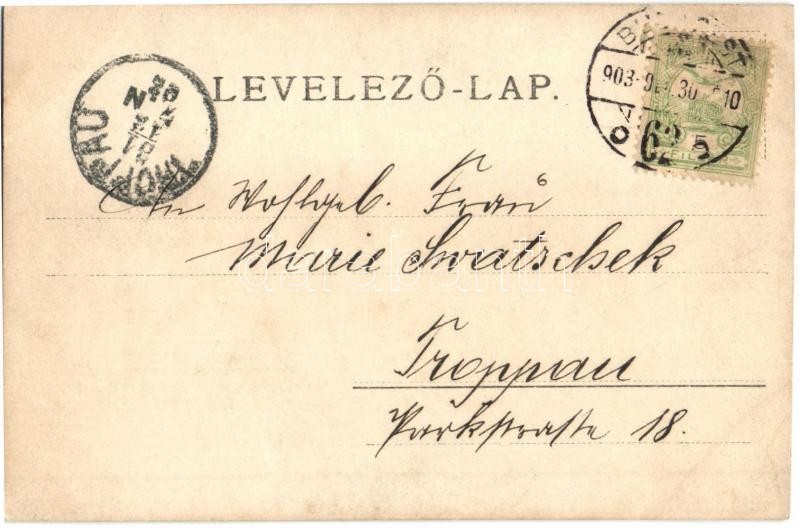 LEVELEZŐ-LAP.
TROPPAU
BUDAPEST
903
30
10
62
5
FIL
An Wohlgeb. Frau
Marie Swatschek
darabanth
Troppau
Parkstrasse 18.